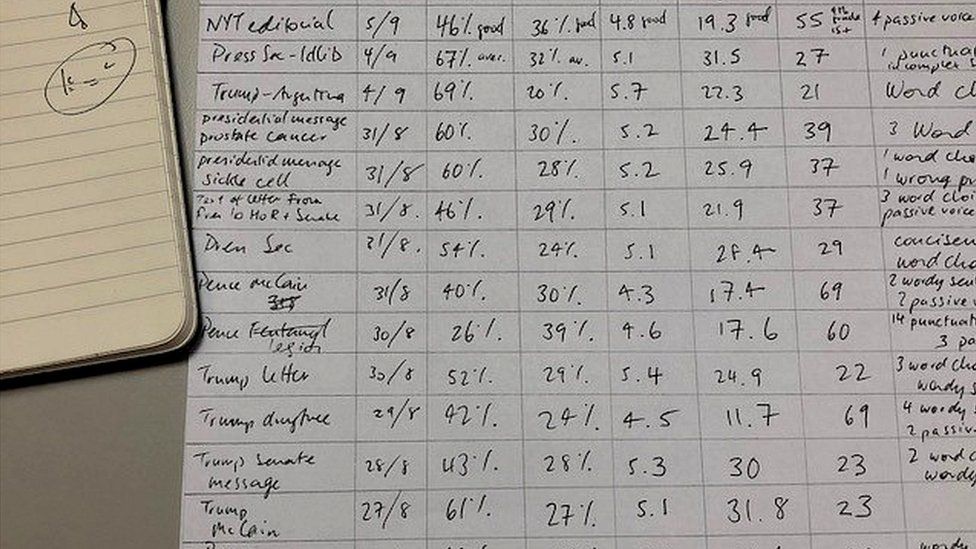 NYT editorial 5/9 46% good 36% good 4.8 good 19.3 good 55 4 passive voice
Press Sec - Idlib 4/9 67% aver. 32% av. 5.1 31.5 27 1 punctua
incomplex s
Trump - Argentina 4/9 69% 20% 5.7 22.3 21 Word ch
presidential message
prostate cancer 31/8 60% 30% 5.2 24.4 39 3 Word
presidential message
sickle cell 31/8 60% 28% 5.2 25.9 37 1 word cho
1 wrong pr
Text of letter from
to HoR + Senate 31/8. 46% 29% 5.1 21.9 37 3 word choi
passive voic
Sec 31/8. 54% 24% 5.1 28.4 29 concisen
word cho
Pence McCain 31/8 40% 30% 4.3 17.4 69 2 wordy sen
2 passive v
Pence
legion 30/8 26% 39% 4.6 17.6 60 14 punctuat
3 pa
Trump letter 30/8 52% 29% 5.4 24.9 22 3 word cho
wordy s
Trump drugfree 29/8 42% 24% 4.5 11.7 69 4 wordy
2 passiv
Trump Senate
message 28/8 43% 28% 5.3 30 23 2 word c
wordy
Trump
McCain 27/8 61% 27% 5.1 31.8 23
wordy